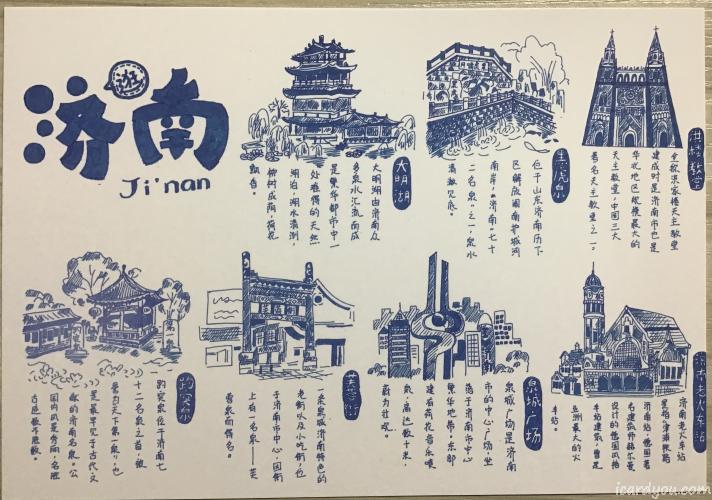 逛
济南
Ji'nan
大明湖
大明湖由济南众
多泉水汇流而成
是繁华都市中一
处难得的天然
湖泊,湖水清澈,
柳树成荫,荷花
飘香。
黑虎泉
位于山东济南历下
区解放阁南护城河
南岸,“济南”七十
二名泉”之一,泉水
清澈见底。
洪楼教堂
全称洪家楼天主教堂
建成时是济南市也是
华北地区规模最大的
天主教堂,中国三大
著名天主教堂之一。
趵突泉
趵突泉位于济南七
十二名泉之首,被
誉为天下第一泉”,也
是最早见于古代文
献的济南名泉。公
园内风景秀丽,名胜
古迹数不胜数。
芙蓉街
一条泉城济南特色的
老街以及小吃街,位
于济南市中心,因街
上有一名泉——芙
蓉泉而得名。
泉城·广场
泉城广场是济南
市的中心广场,坐
落于济南市中心
繁华地带。东部
建有荷花音乐喷
泉,高达数十米,
蔚为壮观。
老火车站
济南老火车站
津浦铁路
济南站,德国著
名建筑师赫尔曼
设计的德国风格
车站建筑,曾是
亚洲最大的火
车站。
icardyou.com